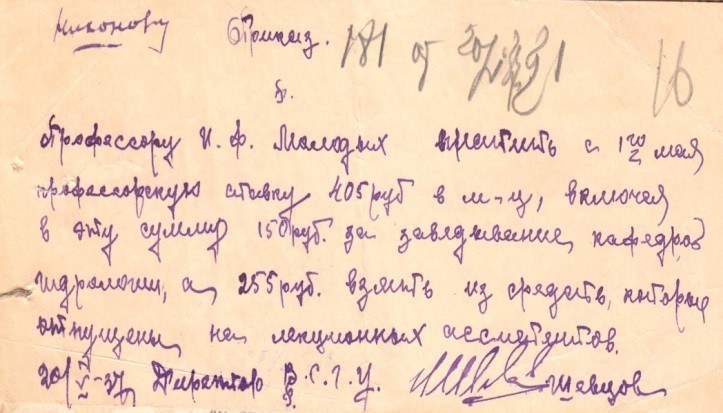 Никонову Приказ. 181 от 20/VI 1 16
§.
Профессору И. Ф. Молодых платить с 1го мая
профессорскую ставку 405 руб в м-ц, включая
в эту сумму 150 руб. за заведывание кафедрой
гидрологии, а 255 руб. взять из средств, которые
отпущены на лекционных ассистентов.
20/VI-37 Директор В.С.Г.У. Шевцов